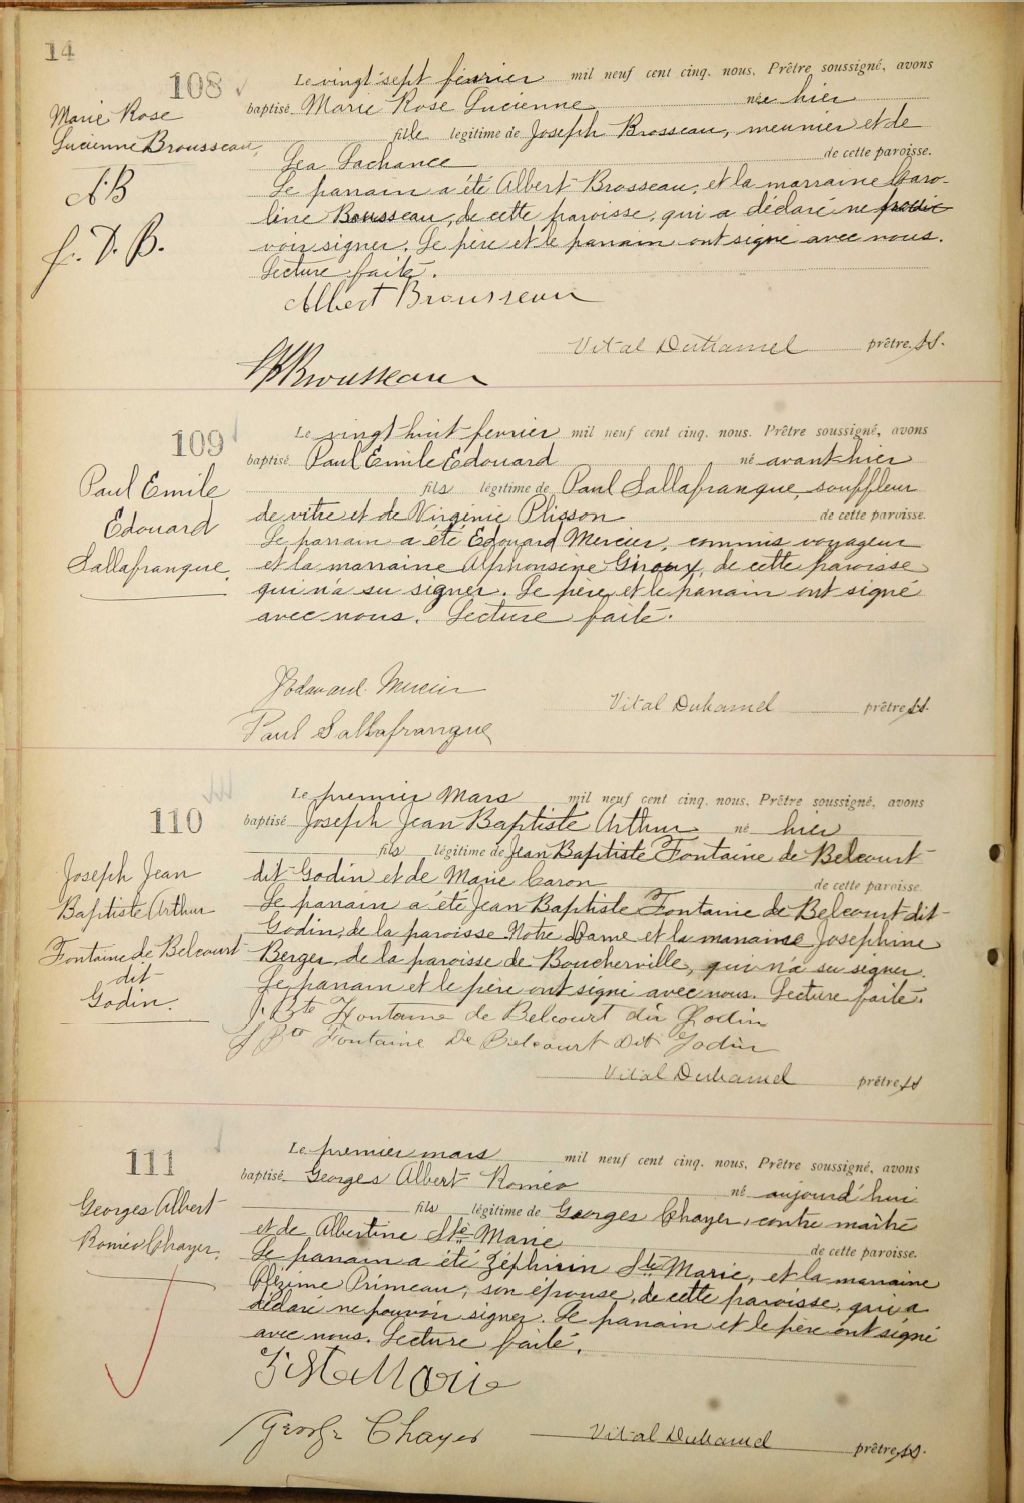 14
108
Marie Rose
Lucienne Brousseau,
A.B
J. D. B.
Le vingt sept février mil neuf cent cinq. nous, Prêtre soussigné, avons
baptisé Marie Rose Lucienne née hier
fille légitime de Joseph Brosseau, meunier et de
Léa Lachance de cette paroisse.
Le parrain a été Albert Brosseau, et la marraine Caro-
line Bousseau, de cette paroisse, qui a déclaré ne
voir signer. Le père et le parrain ont signé avec nous.
Lecture faite.
Albert Brousseau
Vital Duhamel prêtre, SS.
Brousseau
109
Paul Emile
Edouard
Sallafranque.
Le vingt huit fevrier mil neuf cent cinq. nous. Prêtre soussigné, avons
baptisé Paul Emile Edouard né avant-hier
fils légitime de Paul Sallafranque, souffleur
de vitre et de Virginie Plisson de cette paroisse.
Le parrain a été Edouard Mercier, commis voyageur
et la marraine Alphonsine Giroux, de cette paroisse
qui n'a su signer. Le père, et le parrain ont signé
avec nous. Lecture faite.
Edouard Mercier
Vital Duhamel prêtre SS.
Paul Sallafranque
110
Joseph Jean
Baptiste Arthur
Fontaine de Belcourt
dit
Godin.
Le premier Mars mil neuf cent cinq. nous. Prêtre soussigné, avons
baptisé Joseph Jean Baptiste Arthur né hier
fils légitime de Jean Baptiste Fontaine de Belcourt
dit Godin et de Marie Caron de cette paroisse.
Le parrain a été Jean Baptiste Fontaine de Belcourt dit
Godin, de la paroisse Notre Dame et la marraine Josephine
Berger, de la paroisse de Boucherville, qui n'a su signer.
Le parrain et le père ont signé avec nous. Lecture faite.
J. Bte Fontaine de Belcourt dit Godin
J Bte Fontaine De Belcourt Dit Godin
Vital Duhamel prêtre SS
111
Georges Albert
Roméo Chayer.
Le premier mars mil neuf cent cinq. nous, Prêtre soussigné, avons
baptisé Georges Albert Roméo né aujourd'hui
fils légitime de Georges Chayer, contre maître
et de Albertine Ste Marie de cette paroisse.
Le parrain a été Zéphirin Ste Marie, et la marraine
Primeau, son épouse, de cette paroisse, qui a
déclaré ne pouvoir signer. Le parrain et le père ont signé
avec nous. Lecture faite.
Z Ste Marie
George Chayer
Vital Duhamel prêtre, SS.